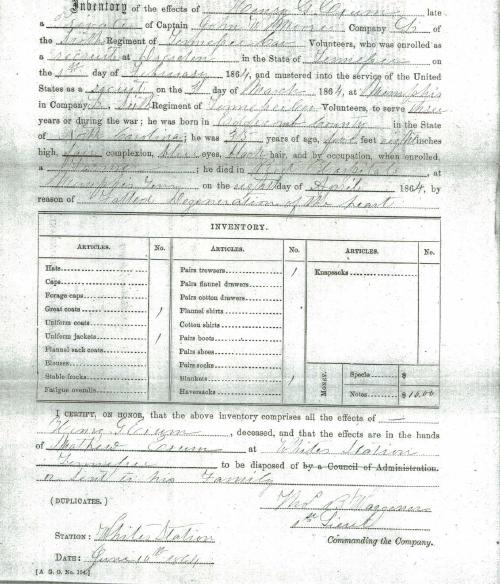 Inventory of the effects of Henry G. Crum late
a private of Captain John W. Moore Company D of
the Sixth Regiment of Tennessee Cav Volunteers, who was enrolled as
a recruit at in the State of Tennessee on
the day of 1864, and mustered into the service of the United
States as a on the day of March 1864, at Memphis
in Company D, Sixth Regiment of Tennessee Volunteers, to serve three
years or during the war; he was born in County in the State
of North Carolina; he was 35 years of age, five feet eight inches
high, fair complexion, blue eyes, black hair, and by occupation, when enrolled,
a Farmer; he died in , at
Memphis Tenn, on the eight day of April 1864, by
reason of Fatted Degeneration of the heart
INVENTORY.
ARTICLES. No. ARTICLES. No. ARTICLES. No.
Hats Pairs trowsers 1 Knapsacks
Caps Pairs flannel drawers
Forage caps Pairs cotton drawers
Great coats 1 Flannel shirts
Uniform coats Cotton shirts
Uniform jackets 1 Pairs boots
Flannel sack coats Pairs shoes
Blouses Pairs socks
Stable frocks Blankets 1
Fatigue overalls Haversacks
MONEY. Specie $
Notes $ 10.00
I CERTIFY, ON HONOR, that the above inventory comprises all the effects of
Henry G Crum, deceased, and that the effects are in the hands
of Mathew Crum at Whites Station
Tennessee to be disposed of by a Council of Administration.
or sent to his Family
(DUPLICATES.)
Thos R Waggoner
1st Lieut
Commanding the Company.
STATION: Whites Station
DATE: June 10th 1864
[A. G. O. No. 104.]